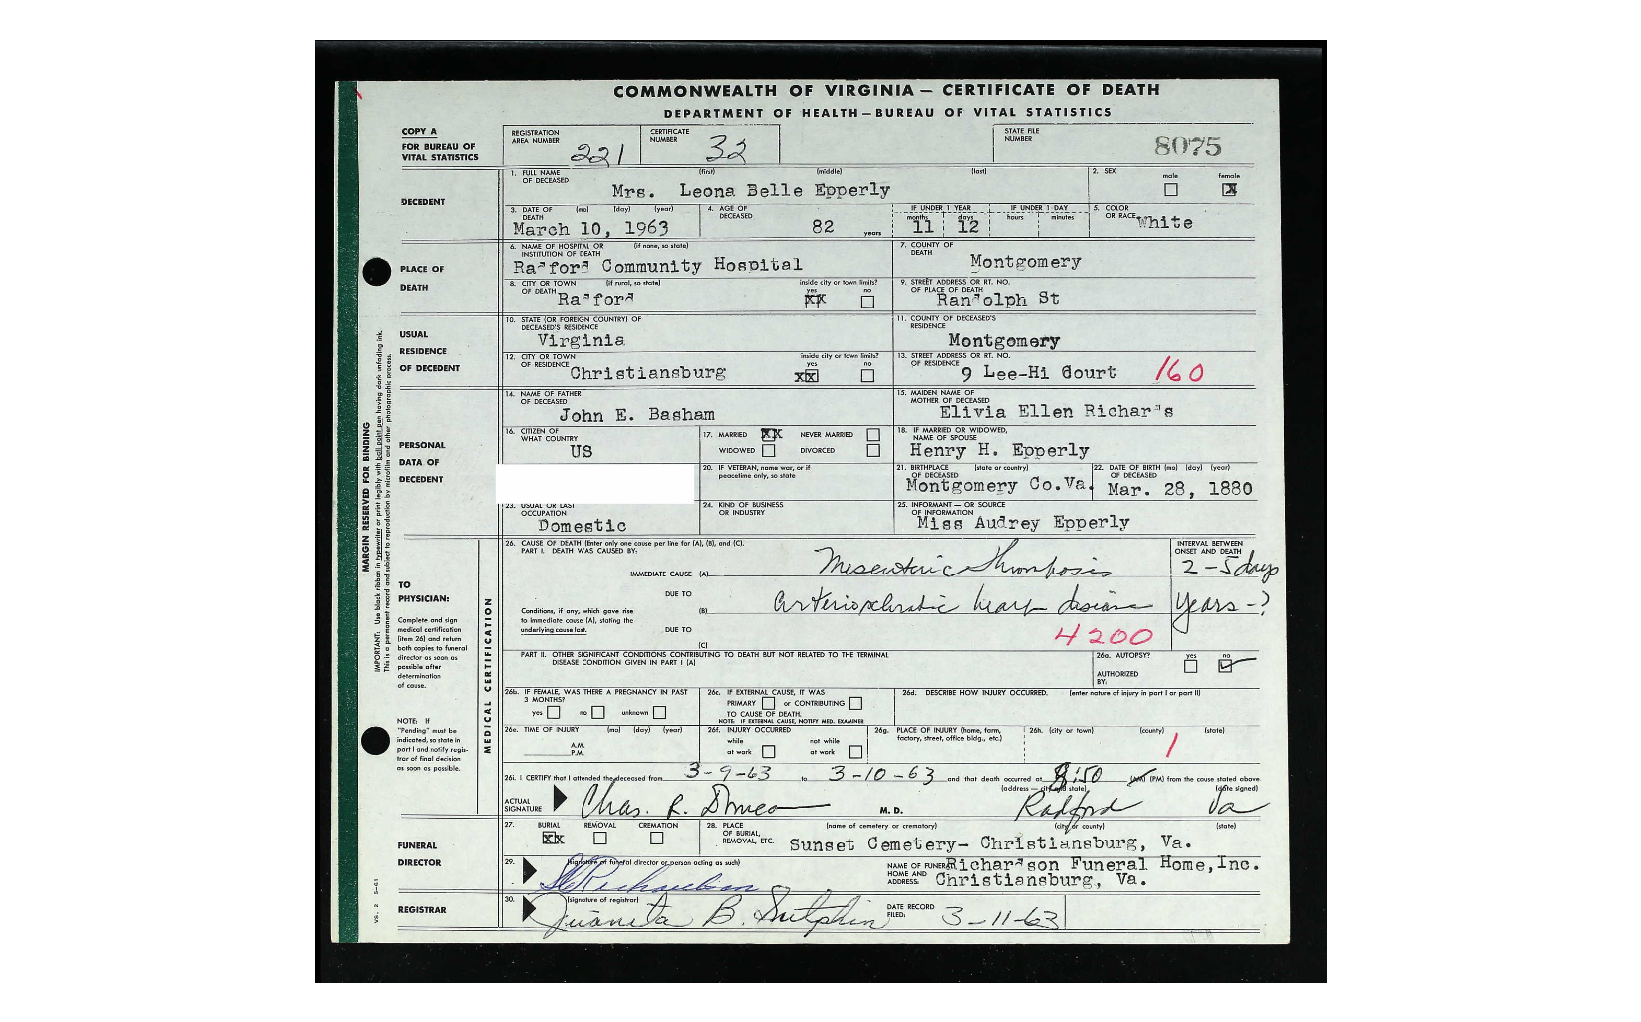 COMMONWEALTH OF VIRGINIA — CERTIFICATE OF DEATH
DEPARTMENT OF HEALTH — BUREAU OF VITAL STATISTICS
COPY A
FOR BUREAU OF
VITAL STATISTICS
REGISTRATION
AREA NUMBER 221
CERTIFICATE
NUMBER 32
STATE FILE
NUMBER 8075
DECEDENT
1. FULL NAME
OF DECEASED
(first) (middle) (last)
Mrs. Leona Belle Epperly
2. SEX
male female X
3. DATE OF (mo) (day) (year)
DEATH
March 10, 1963
4. AGE OF
DECEASED
82 years
IF UNDER 1 YEAR IF UNDER 1 DAY
months days hours minutes
11 12
5. COLOR
OR RACE White
PLACE OF
DEATH
6. NAME OF HOSPITAL OR (if none, so state)
INSTITUTION OF DEATH
Radford Community Hospital
7. COUNTY OF
DEATH
Montgomery
8. CITY OR TOWN (if rural, so state)
OF DEATH Radford
inside city or town limits?
yes no
XX
9. STREET ADDRESS OR RT. NO.
OF PLACE OF DEATH
Randolph St
USUAL
RESIDENCE
OF DECEDENT
10. STATE (OR FOREIGN COUNTRY) OF
DECEASED'S RESIDENCE
Virginia
11. COUNTY OF DECEASED'S
RESIDENCE
Montgomery
12. CITY OR TOWN
OF RESIDENCE Christiansburg
inside city or town limits?
yes no
XX
13. STREET ADDRESS OR RT. NO.
OF RESIDENCE
9 Lee-Hi Court 160
PERSONAL
DATA OF
DECEDENT
14. NAME OF FATHER
OF DECEASED
John E. Basham
15. MAIDEN NAME OF
MOTHER OF DECEASED
Elivia Ellen Richards
16. CITIZEN OF
WHAT COUNTRY
US
17. MARRIED XX NEVER MARRIED
WIDOWED DIVORCED
18. IF MARRIED OR WIDOWED,
NAME OF SPOUSE
Henry H. Epperly
20. IF VETERAN, name war, or if
peacetime only, so state
21. BIRTHPLACE (state or country)
OF DECEASED
Montgomery Co.Va.
22. DATE OF BIRTH (mo) (day) (year)
OF DECEASED
Mar. 28, 1880
23. USUAL OR LAST
OCCUPATION
Domestic
24. KIND OF BUSINESS
OR INDUSTRY
25. INFORMANT — OR SOURCE
OF INFORMATION
Miss Audrey Epperly
MARGIN RESERVED FOR BINDING
IMPORTANT: Use black ribbon in typewriter or print legibly with ball point pen having dark unfading ink.
This is a permanent record and subject to reproduction by microfilm and other photographic process.
TO
PHYSICIAN:
Complete and sign
medical certification
(item 26) and return
both copies to funeral
director as soon as
possible after
determination
of cause.
NOTE: If
"Pending" must be
indicated, so state in
part I and notify regis-
trar of final decision
as soon as possible.
MEDICAL CERTIFICATION
26. CAUSE OF DEATH (Enter only one cause per line for (A), (B), and (C).
PART I. DEATH WAS CAUSED BY:
INTERVAL BETWEEN
ONSET AND DEATH
IMMEDIATE CAUSE (A) Mesenteric Thrombosis 2-5 days
DUE TO
Conditions, if any, which gave rise
to immediate cause (A), stating the
underlying cause last.
(B) Arteriosclerotic heart disease Years-?
DUE TO
4200
(C)
PART II. OTHER SIGNIFICANT CONDITIONS CONTRIBUTING TO DEATH BUT NOT RELATED TO THE TERMINAL
DISEASE CONDITION GIVEN IN PART I (A)
26a. AUTOPSY? yes no
AUTHORIZED
BY:
26b. IF FEMALE, WAS THERE A PREGNANCY IN PAST
3 MONTHS?
yes no unknown
26c. IF EXTERNAL CAUSE, IT WAS
PRIMARY or CONTRIBUTING
TO CAUSE OF DEATH.
NOTE: IF EXTERNAL CAUSE, NOTIFY MED. EXAMINER
26d. DESCRIBE HOW INJURY OCCURRED. (enter nature of injury in part I or part II)
26e. TIME OF INJURY (mo) (day) (year)
A.M.
P.M.
26f. INJURY OCCURRED
while not while
at work at work
26g. PLACE OF INJURY (home, farm,
factory, street, office bldg., etc.)
26h. (city or town) (county) (state)
1
26i. I CERTIFY that I attended the deceased from 3-9-63 to 3-10-63 and that death occurred at 8:50 (AM) (PM) from the cause stated above
(address — city and state) (date signed)
ACTUAL
SIGNATURE Chas. R. M. D. Radford Va
FUNERAL
DIRECTOR
27. BURIAL REMOVAL CREMATION
XX
28. PLACE
OF BURIAL,
REMOVAL, ETC.
(name of cemetery or crematory) (city or county) (state)
Sunset Cemetery- Christiansburg, Va.
29. (signature of funeral director or person acting as such)
Richardson
NAME OF FUNERAL
HOME AND
ADDRESS:
Richardson Funeral Home,Inc.
Christiansburg, Va.
REGISTRAR
30. (signature of registrar)
Juanita B. Sutphin
DATE RECORD
FILED: 3-11-63
VS. 2 5-61